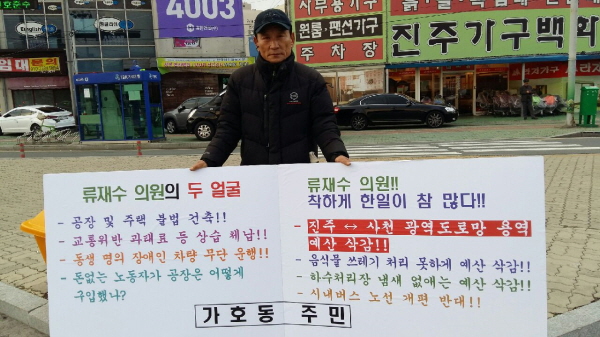 4003
English
사무용가구
원룸·팬션가구
주차장
진주가구백화
류재수 의원의 두 얼굴
- 공장 및 주택 불법 건축!!
- 교통위반 과태료 등 상습 체납!!
- 동생 명의 장애인 차량 무단 운행!!
- 돈없는 노동자가 공장은 어떻게
구입했나?
류재수 의원!!
착하게 한일이 참 많다!!
- 진주 ↔ 사천 광역도로망 용역
예산 삭감!!
- 음식물 쓰레기 처리 못하게 예산 삭감!!
- 하수처리장 냄새 없애는 예산 삭감!!
- 시내버스 노선 개편 반대!!
가호동 주민